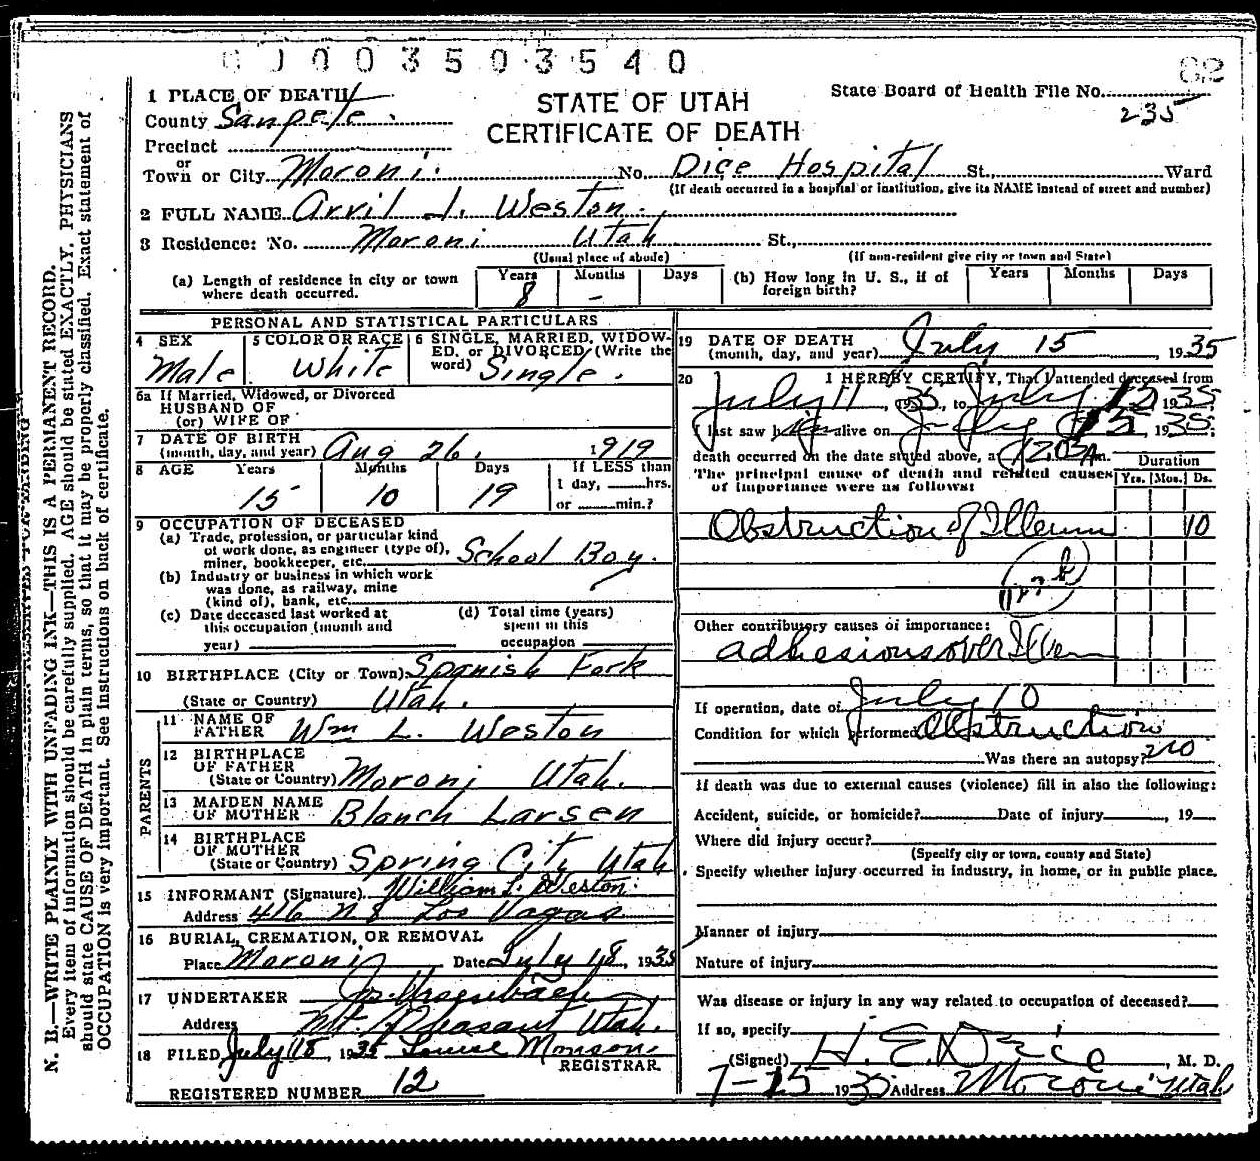 0 0 0 0 3 5 0 3 5 4 0
82
1 PLACE OF DEATH
STATE OF UTAH
CERTIFICATE OF DEATH
State Board of Health File No.
235
County Sanpete.
Precinct
or
Town or City Moroni. No. Dice Hospital St. Ward
(If death occurred in a hospital or institution, give its NAME instead of street and number)
2 FULL NAME Arvil J. Weston.
3 Residence: No. Moroni Utah St.,
(Usual place of abode) (If non-resident give city or town and State)
(a) Length of residence in city or town where death occurred. Years 8 Months - Days (b) How long in U. S., if of foreign birth? Years Months Days
PERSONAL AND STATISTICAL PARTICULARS
4 SEX Male
5 COLOR OR RACE White
6 SINGLE, MARRIED, WIDOWED, or DIVORCED (Write the word) Single.
6a If Married, Widowed, or Divorced
HUSBAND OF
(or) WIFE OF
7 DATE OF BIRTH
(month, day, and year) Aug 26, 1919
8 AGE Years 15 Months 10 Days 19 If LESS than
1 day, hrs.
or min.?
9 OCCUPATION OF DECEASED
(a) Trade, profession, or particular kind
of work done, as engineer (type of),
miner, bookkeeper, etc. School Boy.
(b) Industry or business in which work
was done, as railway, mine
(kind of), bank, etc.
(c) Date deceased last worked at
this occupation (month and
year)
(d) Total time (years)
spent in this
occupation
10 BIRTHPLACE (City or Town) Spanish Fork
(State or Country) Utah.
PARENTS
11 NAME OF
FATHER Wm L. Weston
12 BIRTHPLACE
OF FATHER
(State or Country) Moroni Utah.
13 MAIDEN NAME
OF MOTHER Blanch Larsen
14 BIRTHPLACE
OF MOTHER
(State or Country) Spring City Utah
15 INFORMANT (Signature) William L. Weston.
Address 416 N. 8 Los Vagas
16 BURIAL, CREMATION, OR REMOVAL
Place Moroni Date July 18, 1935
17 UNDERTAKER
Address Mt. Pleasant Utah.
18 FILED July 18, 1935 Louise Monson.
REGISTRAR
REGISTERED NUMBER 12
19 DATE OF DEATH
(month, day, and year) July 15, 1935
20 I HEREBY CERTIFY, That I attended deceased from
July 11, 1935, to July 15, 1935.
I last saw him alive on July 15, 1935.
death occurred on the date stated above, at 12.05A m.
The principal cause of death and related causes
of importance were as follows:
Duration
Yrs. Mos. Ds.
Obstruction of Illeum 10
122b
Other contributory causes of importance:
adhesions over Illeum
If operation, date of July 10
Condition for which performed Obstruction
Was there an autopsy? no
If death was due to external causes (violence) fill in also the following:
Accident, suicide, or homicide? Date of injury, 19
Where did injury occur?
(Specify city or town, county and State)
Specify whether injury occurred in industry, in home, or in public place.
Manner of injury
Nature of injury
Was disease or injury in any way related to occupation of deceased?
If so, specify
(Signed) H. E. Dice, M. D.
7-15 1935 Address Moroni Utah
N. B.—WRITE PLAINLY WITH UNFADING INK—THIS IS A PERMANENT RECORD.
Every item of information should be carefully supplied. AGE should be stated EXACTLY. PHYSICIANS
should state CAUSE OF DEATH in plain terms, so that it may be properly classified. Exact statement of
OCCUPATION is very important. See instructions on back of certificate.